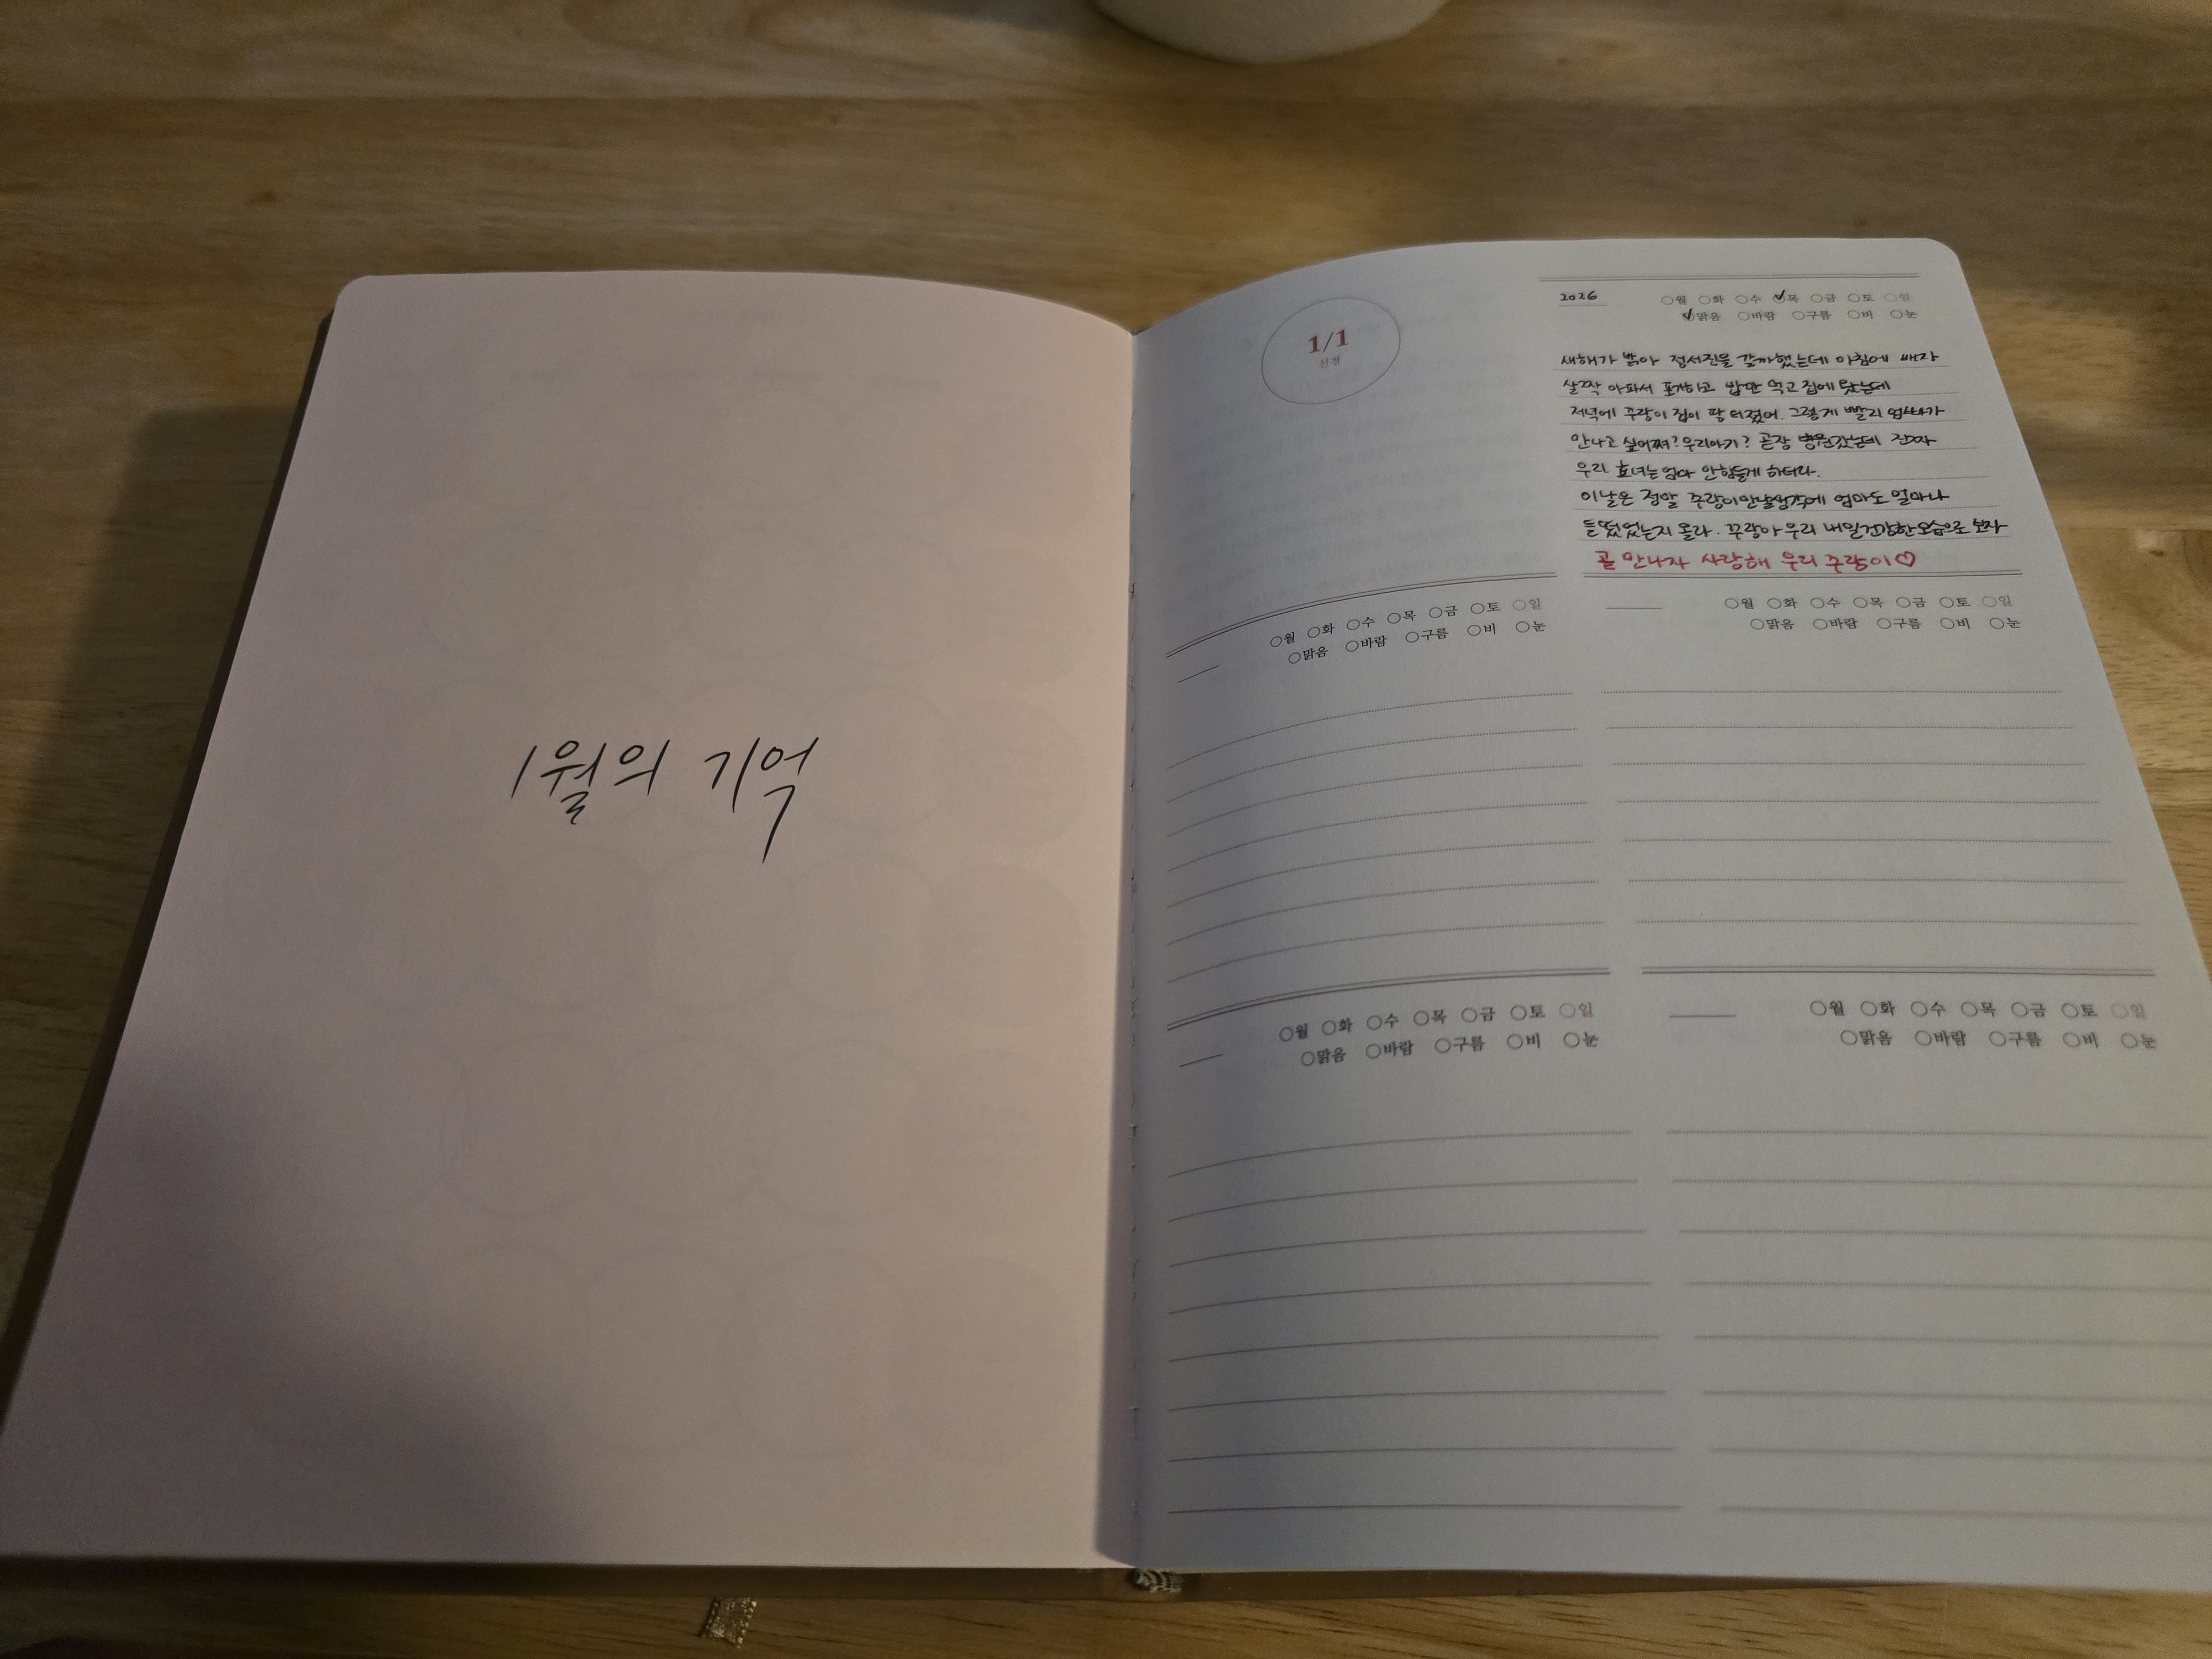 1월의 기억
1/1
신정
2026
월 화 수 목 금 토 일
맑음 바람 구름 비 눈
새해가 밝아 정서진을 갈까했는데 아침에 배가
살짝 아파서 포기하고 밥만 먹고 집에 왔는데
저녁에 꾸랑이 집이 팡 터졌어. 그렇게 빨리 엄빠가
만나고 싶어쪄? 우리아기? 곧장 병원갔는데 진짜
우리 효녀는 엄마 안힘들게 하더라.
이날은 정말 꾸랑이만날생각에 엄마도 얼마나
들떴었는지 몰라. 꾸랑아 우리 내일 건강한 모습으로 보자
곧 만나자 사랑해 우리 꾸랑이♡
월 화 수 목 금 토 일
맑음 바람 구름 비 눈
월 화 수 목 금 토 일
맑음 바람 구름 비 눈
월 화 수 목 금 토 일
맑음 바람 구름 비 눈
월 화 수 목 금 토 일
맑음 바람 구름 비 눈